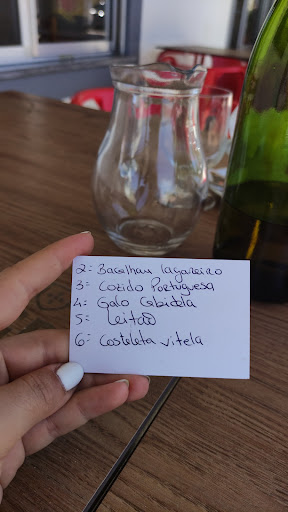 2= Bacalhau lagareiro
3= Cozido Portuguesa
4= Galo Cabidela
5= Leitão
6= Costeleta vitela